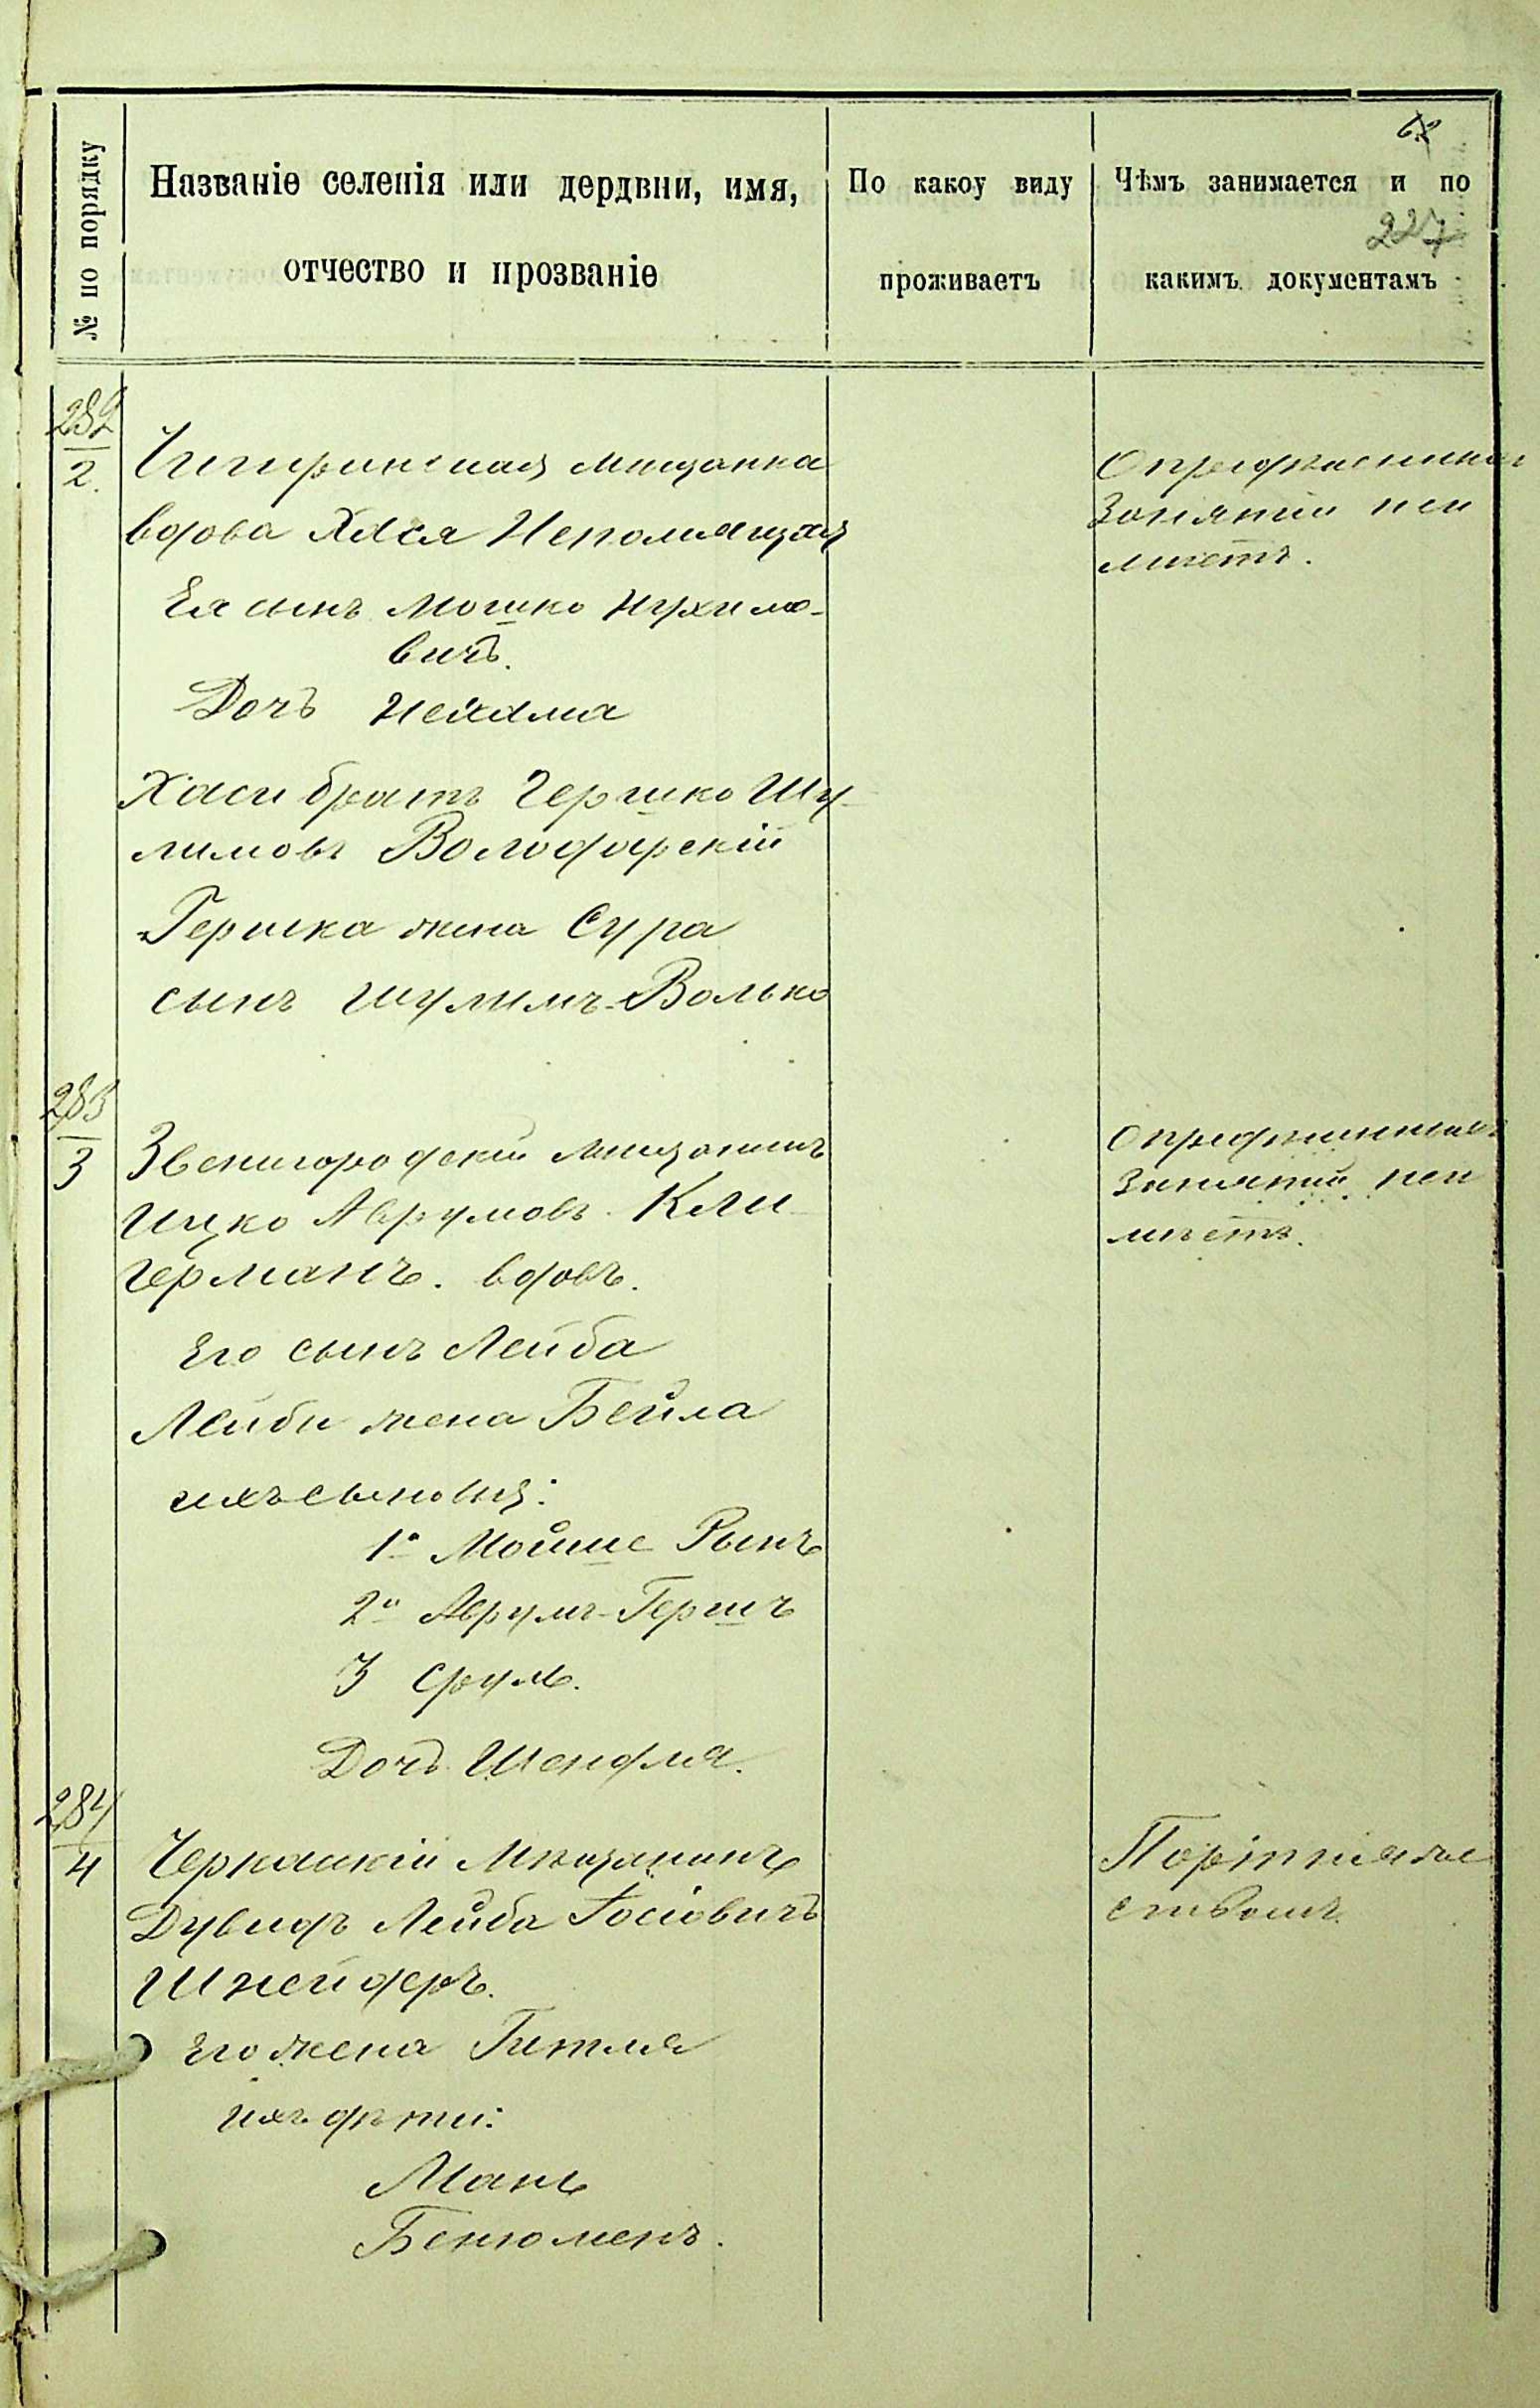 68
227
№ по порядку
Названіе селенія или дердвни, имя,
отчество и прозваніе
По какоу виду
проживаетъ
Чѣмъ занимается и по
какимъ документамъ
282
2.
Чигиринская мещанка
вдова Хася Неполмящая
Ея сынъ Мошко Нухимо-
вичъ.
Дочь Нехама
Хаси братъ Гершко Шу-
лимовъ Володарскій
Гершка жена Сура
сынъ Шулимъ-Волько
Определенныхъ
Занятій неи
мѣетъ.
283
3
Звенигородскій мещанинъ
Ицко Аврумовъ Кли-
германъ. вдовъ.
Его сынъ Лейба
Лейби жена Бейла
ихъ сыновья:
1й Мойше
2й Аврумъ-Гершъ
3 Сруль.
Дочь Шендля.
Определенныхъ
Занятій неи
мѣетъ.
284
4
Черкаскій Мѣщанинъ
Дувидъ Лейба Іосіовичъ
Шнейдеръ.
Его жена Гитля
ихъ дѣти:
Мань
Бенюменъ.
Портняже
ствомъ.